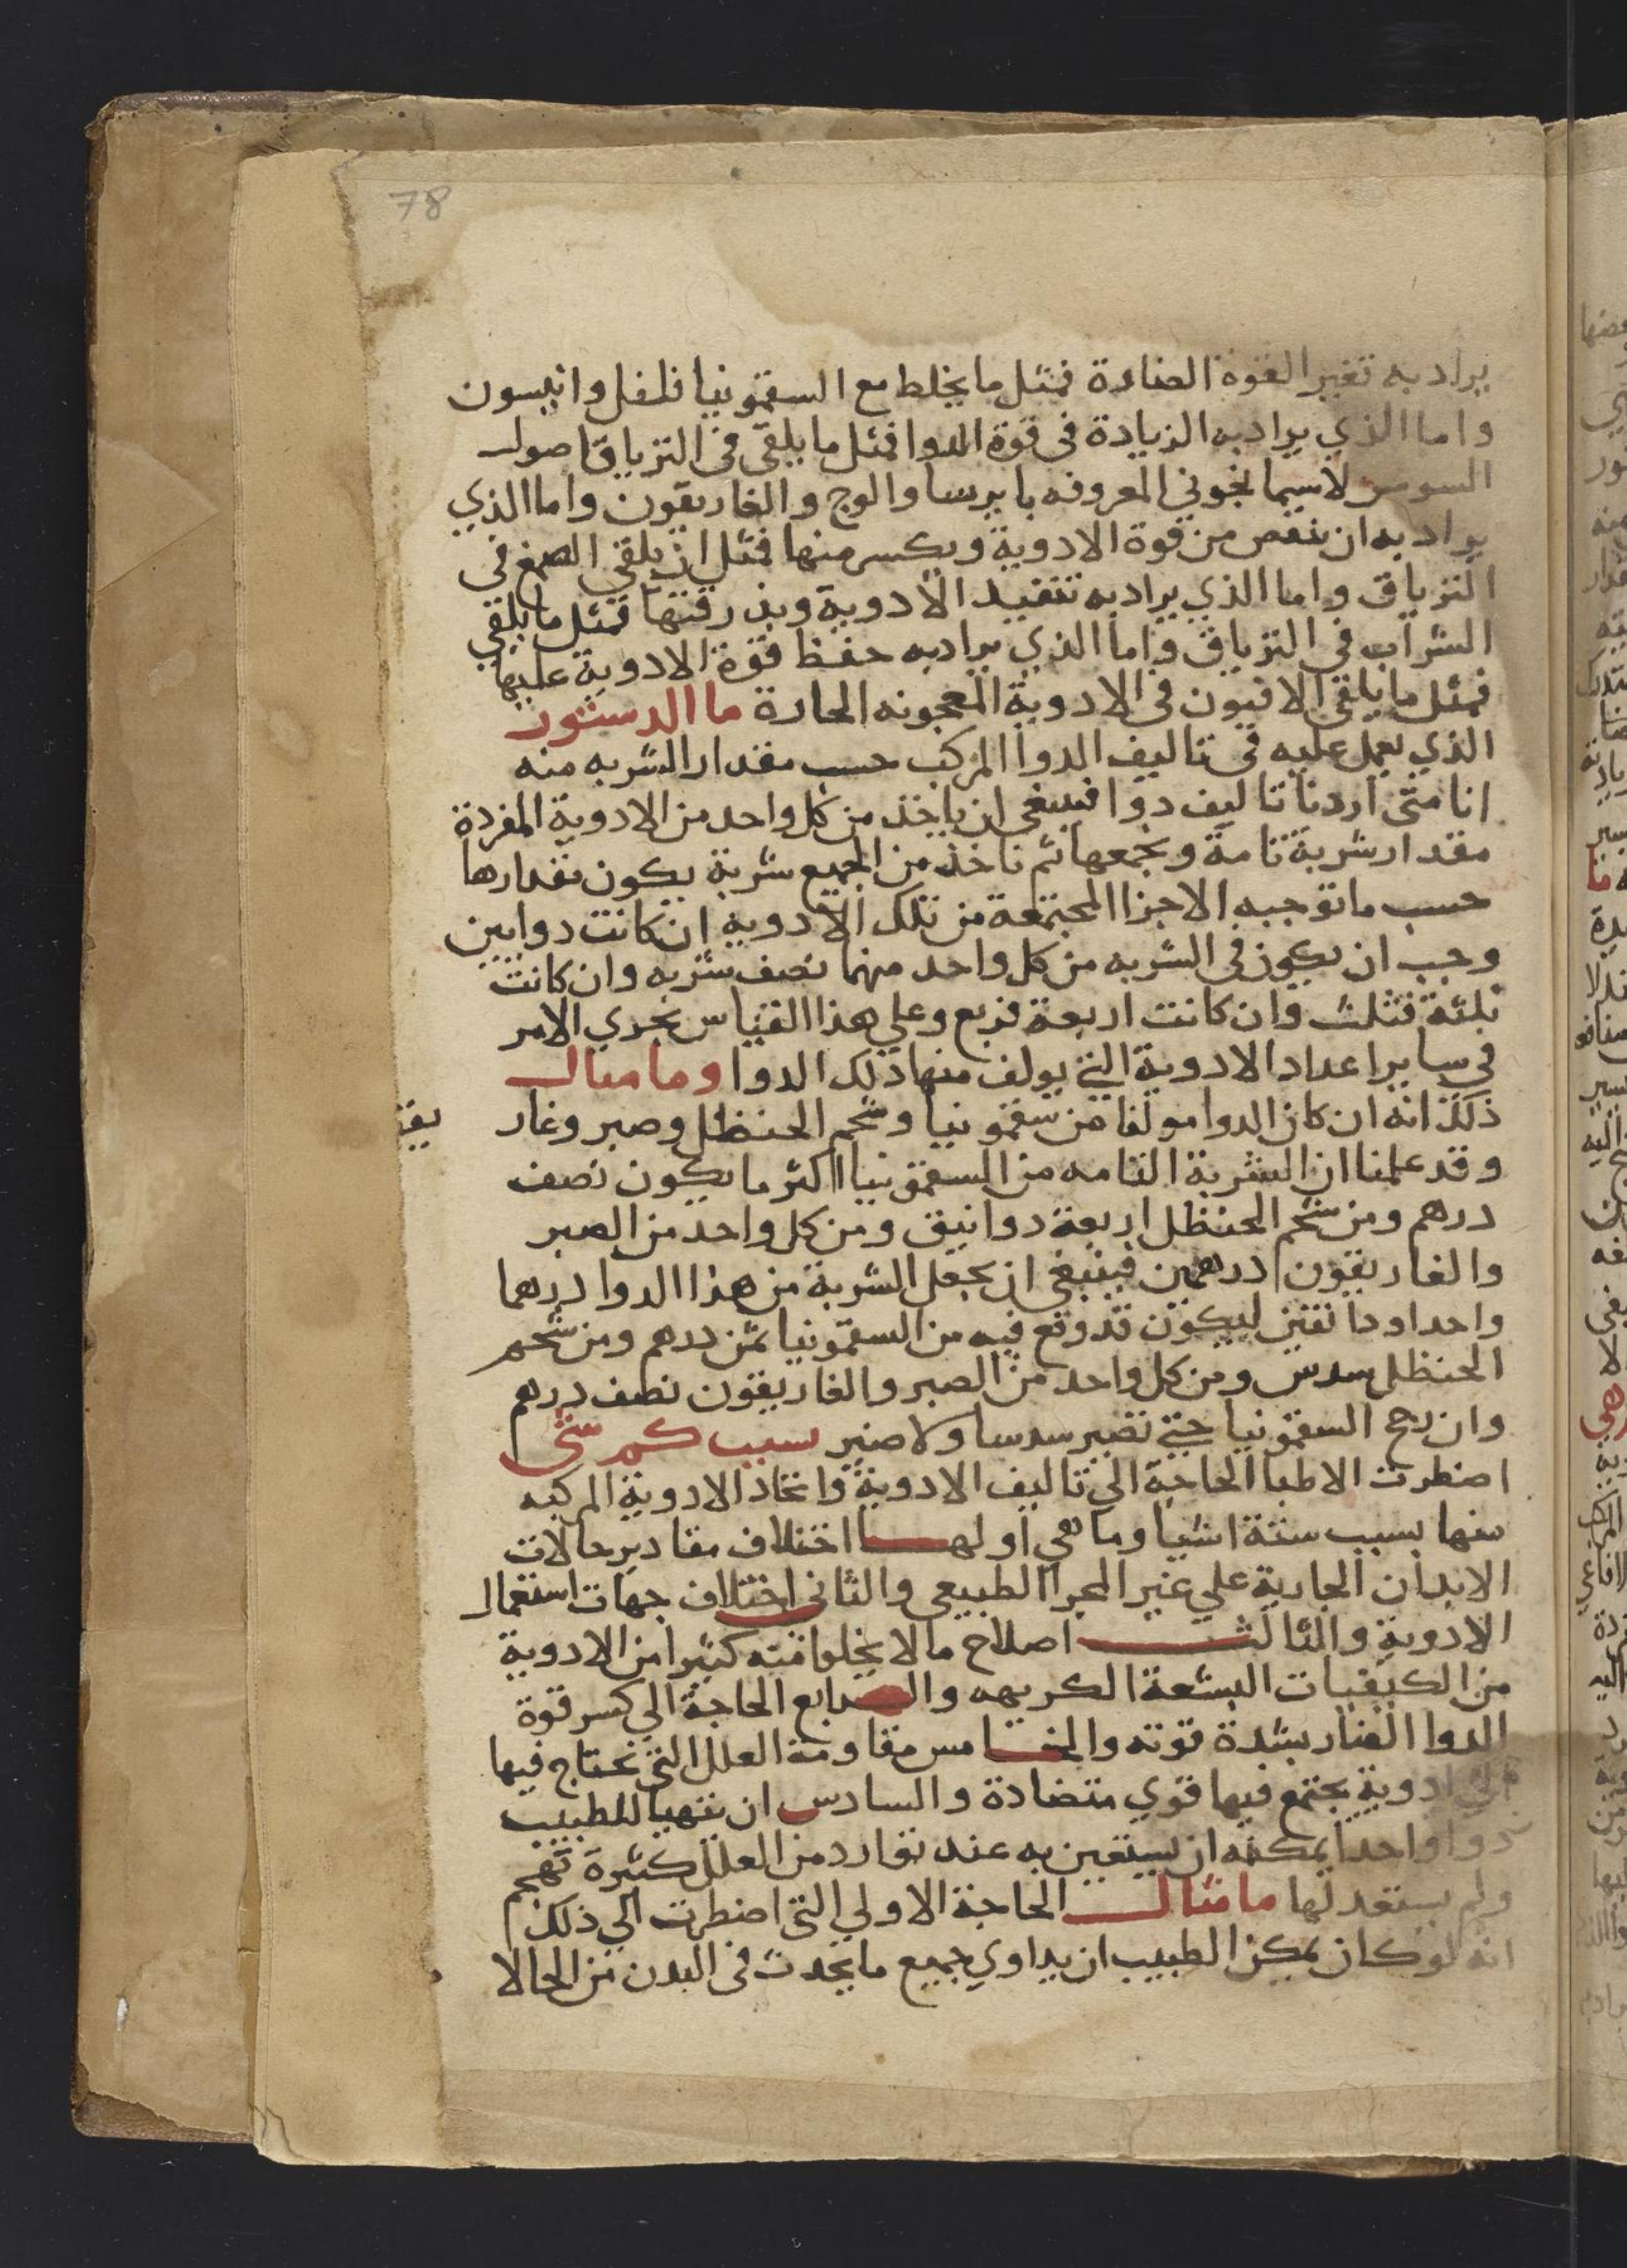 78
يراد به تغير القوة الضارة فمثل ما يخلط مع السقمونيا فلفل وانيسون
واما الذي يراد به الزيادة في قوة الدوا فمثل ما يلقى في الترياق اصول
السوسن لاسيما نجوني المعروفه بايرسا والوج والغاريقون واما الذي
يراد به ان ينقص من قوة الادوية ويكسر منها فمثل ان يلقي الصمغ في
الترياق واما الذي يراد به تنفيد الادوية وبذرقتها فمثل ما يلقي
الشراب في الترياق واما الذي يراد به حفظ قوة الادوية عليها
فمثل ما يلقي الافيون في الادوية المعجونه الحارة ما الدستور
الذي يعمل عليه في تاليف الدوا المركب حسب مقدار الشربه منه
انا متى اردنا تاليف دوا فينبغي ان ياخذ من كل واحد من الادوية المفردة
مقدار شربة تامة ونجمعها ثم ناخذ من الجميع شربة يكون مقدارها
حسب ما توجبه الاجزا المجتمعة من تلك الادوية ان كانت دوايين
وجب ان يكون في الشربه من كل واحد منهما نصف شربه وان كانت
ثلثة فثلث وان كانت اربعة فربع وعلي هذا القياس يجري الامر
في ساير اعداد الادوية التي يولف منها ذلك الدوا وما مثال
ذلك انه ان كان الدوا مولفا من سقمونيا وشحم الحنظل وصبر وغار يقو
وقد علمنا ان الشربة التامه من السقمونيا اكثر ما يكون نصف
درهم ومن شحم الحنظل اربعة دوانيق ومن كل واحد من الصبر
والغاريقون درهمين فينبغي ان يجعل الشربة من هذا الدوا درهما
واحدا ودانقين ليكون قد وقع فيه من السقمونيا ثمن درهم ومن شحم
الحنظل سدس ومن كل واحد من الصبر والغاريقون نصف درهم
وان رجح السقمونيا حتي تصير سدسا ولا ضير سبب كم شي
اضطرت الاطبا الحاجة الي تاليف الادوية واتخاد الادوية المركبه
منها بسبب ستة اشيا وما هي اولها اختلاف مقادير حالات
الابدان الجارية علي غير المجرا الطبيعي والثاني اختلاف جهات استعمال
الادوية والثالث اصلاح ما لا يخلوا منه كثيرا من الادوية
من الكيفيات البشعة الكريهه والرابع الحاجة الي كسر قوة
الدوا الضار بشدة قوته والخامس مقاومة العلل التي نحتاج فيها
الي ادوية يجتمع فيها قوي متضادة والسادس ان يتهيا للطبيب
دوا واحدا يمكنه ان يستعين به عند توارد من العلل كثيرة تهجم
ولم يستعد لها ما مثال الحاجة الاولي التي اضطرت الي ذلك
انه لو كان يمكن الطبيب ان يداوي جميع ما يحدث في البدن من الحالا